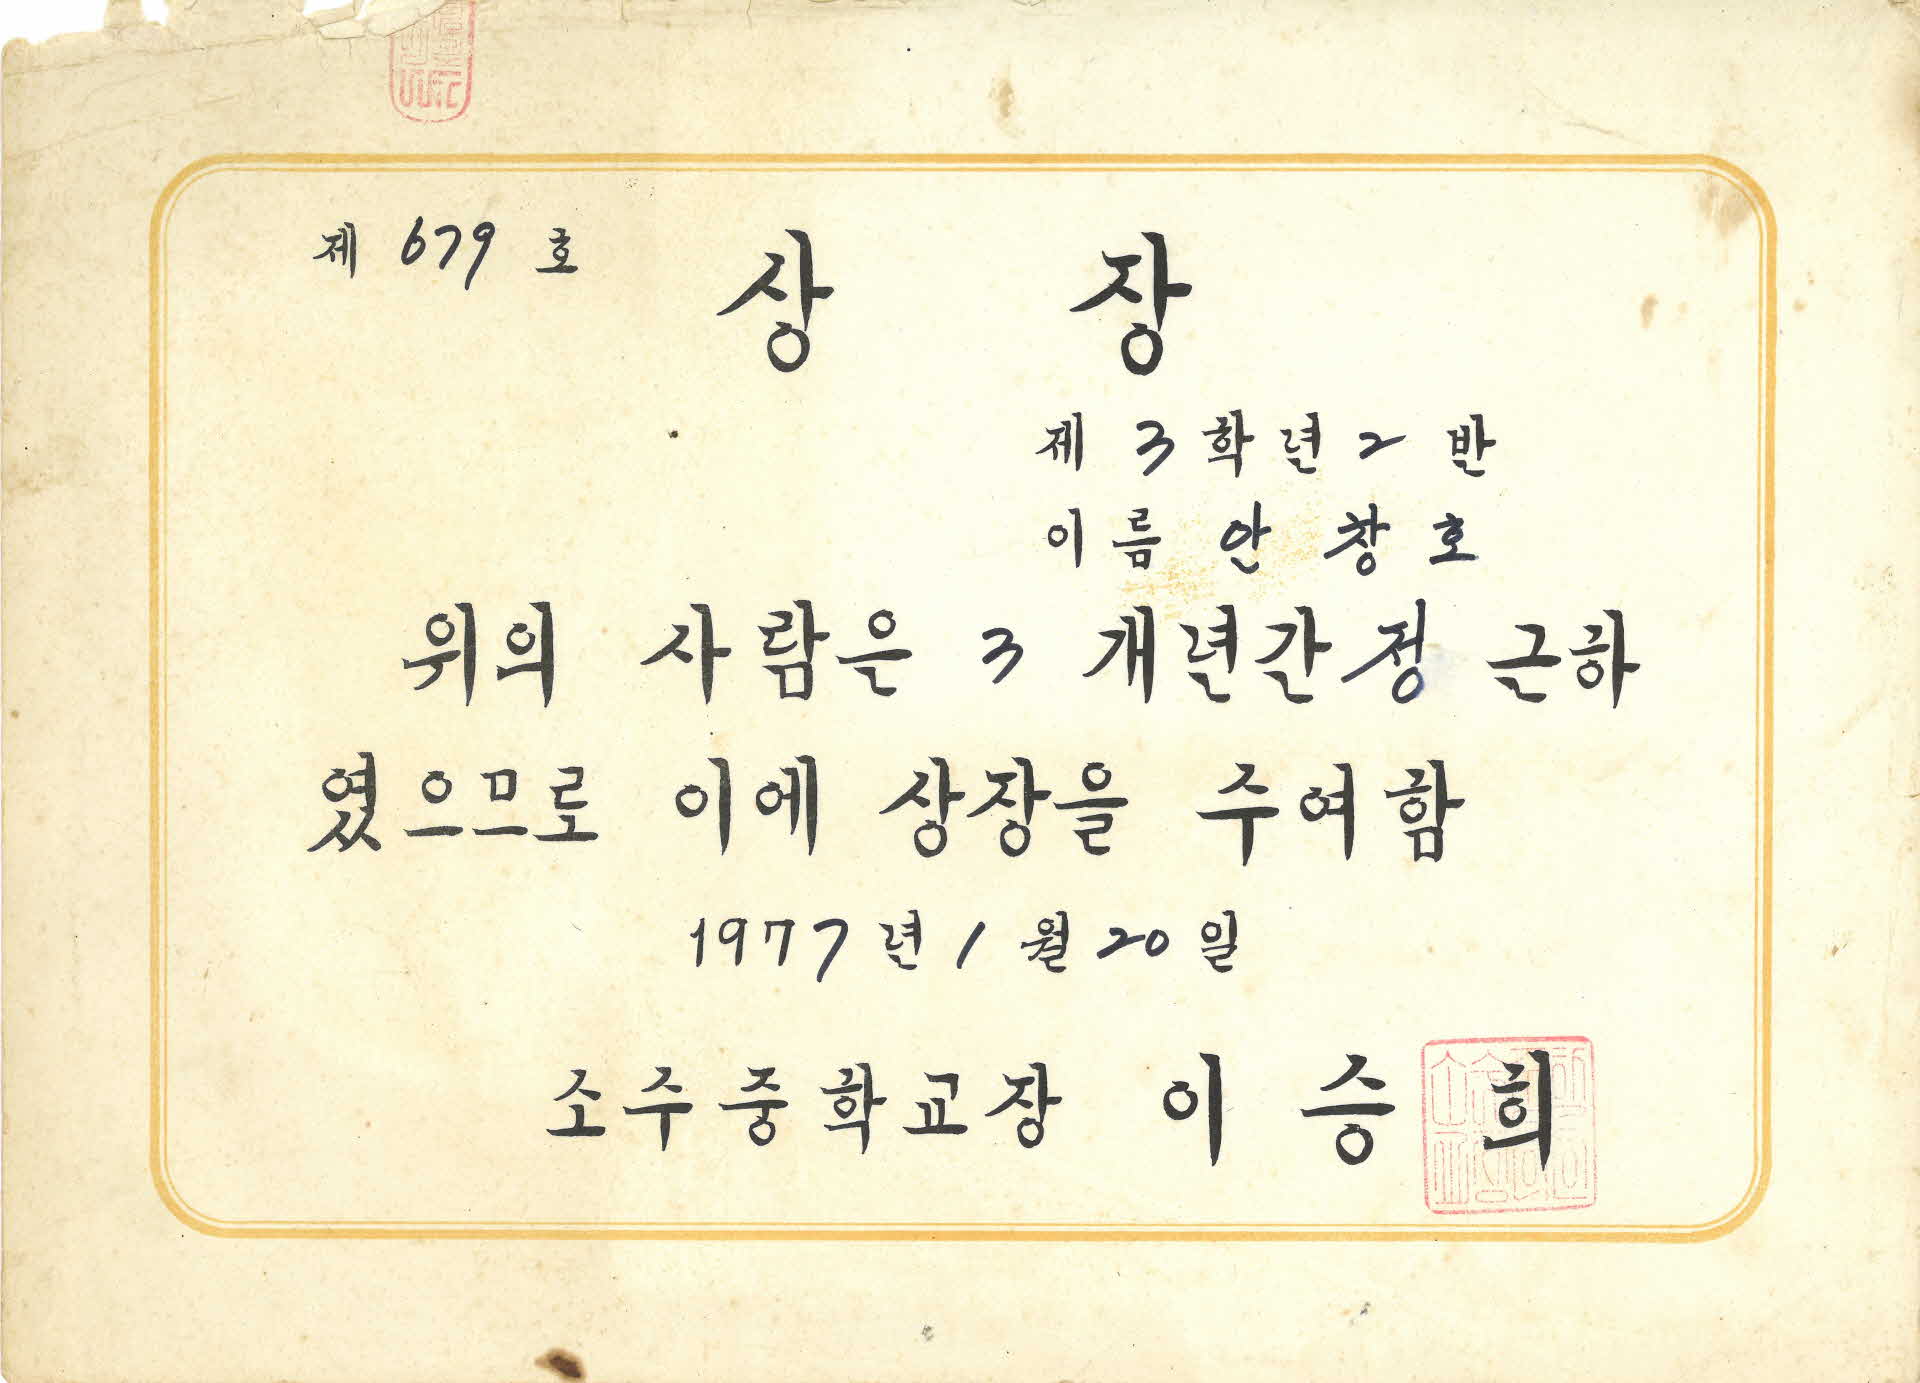 제 679 호
상 장
제 3 학년 2 반
이름 안 창 호
위의 사람은 3 개년간 정근하
였으므로 이에 상장을 수여함
1977년 1월 20일
소수중학교장 이승희